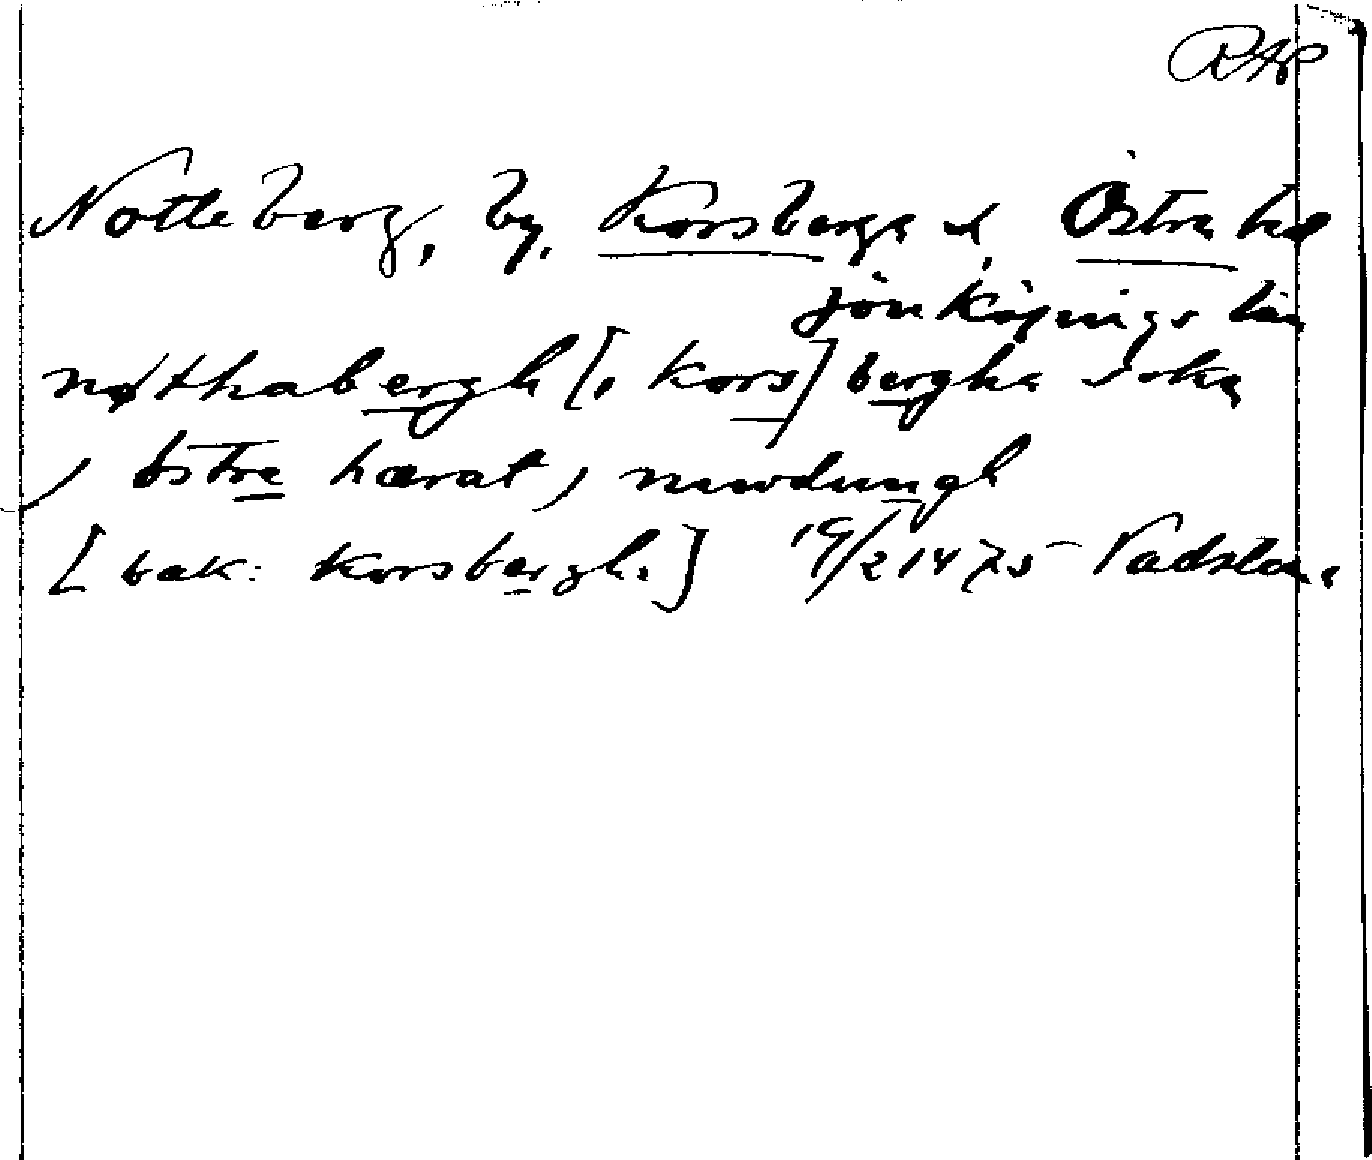 RAP
Nötteberg, by, Korsberga sd, Östra hd
Jönköpings län
nøthabergh [i Kors] bergha sokn
i östre hærat i niwdungh
[bak: Korsbergh.] 19/2 1475 Vadstena